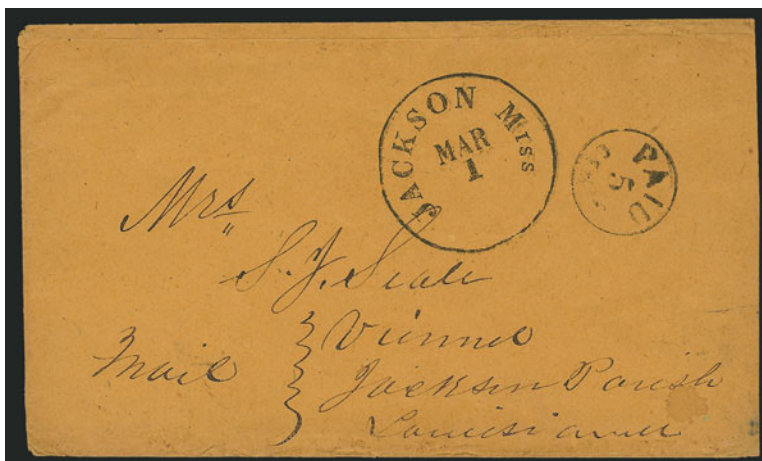 JACKSON Miss
MAR
1
PAID
5
Mrs
S. J. Seale
Mail
Vienna
Jackson Parish
Louisiana